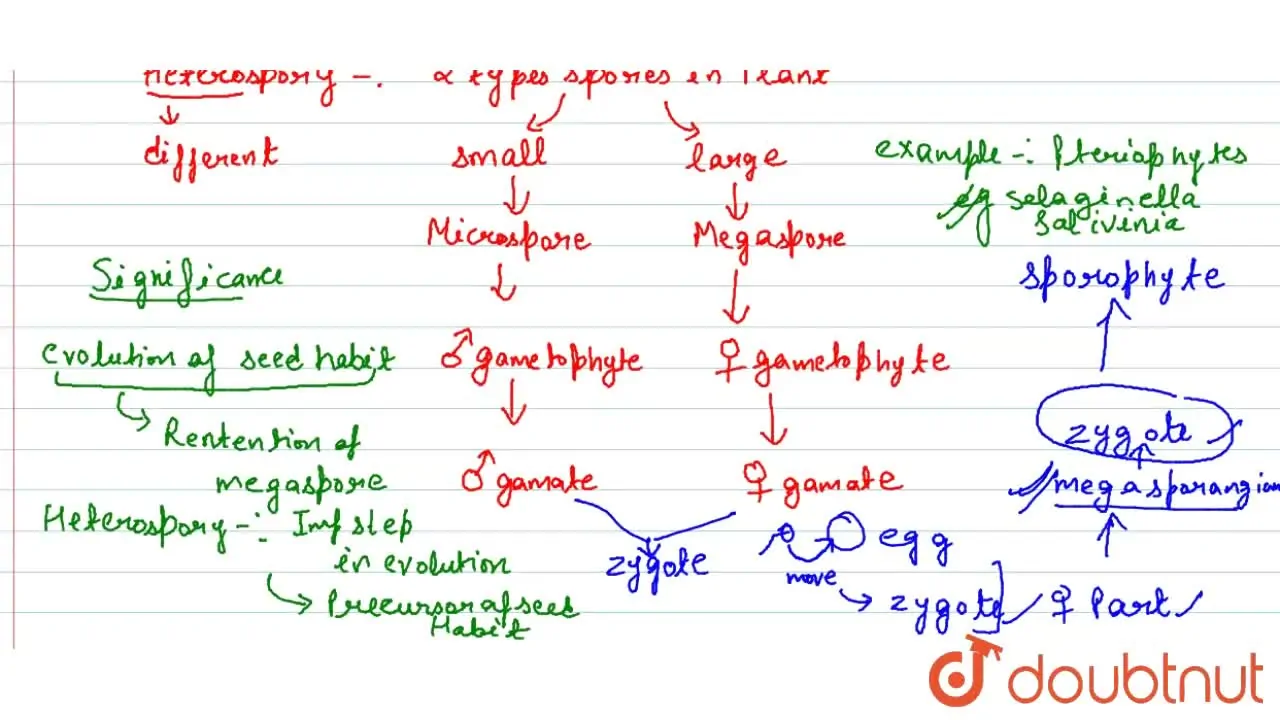 Heterospory -: 2 types spores in Plant
different
small
large
example -: Pteriophytes
eg selaginella
Salivinia
Microspore
Megaspore
Significance
sporophyte
evolution of seed habit
♂ gametophyte
♀ gametophyte
Rentention of
megaspore
zygote
♂ gamate
♀ gamate
megasporangium
Heterospory -: Imp step
in evolution
zygote
egg
move
Precursor of seed
Habit
zygote
♀ Part
doubtnut